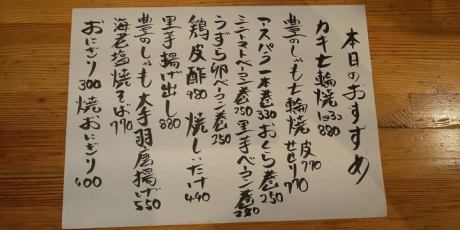 本日のおすすめ
カキ七輪焼 1コ 880
豊のしゃも七輪焼 皮770 せせり770
アスパラ一本巻330 おくら巻250
ミニトマトベーコン巻250 里芋ベーコン巻280
うずら卵ベーコン巻250
鶏皮酢480 焼しいたけ440
里芋揚げ出し880
豊のしゃも大手羽唐揚げ550
海老塩焼そば770
おにぎり300 焼おにぎり400